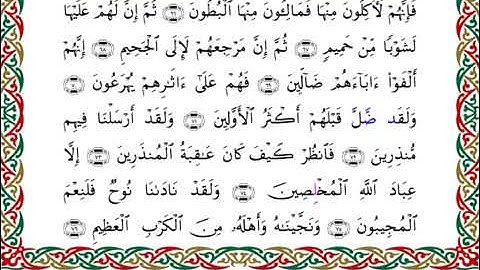 فَإِنَّهُمْ لَأٓكِلُونَ مِنْهَا فَمَالِـُٔونَ مِنْهَا ٱلْبُطُونَ ٦٦ ثُمَّ إِنَّ لَهُمْ عَلَيْهَا
لَشَوْبًا مِّنْ حَمِيمٍ ٦٧ ثُمَّ إِنَّ مَرْجِعَهُمْ لَإِلَى ٱلْجَحِيمِ ٦٨ إِنَّهُمْ
أَلْفَوْا۟ ءَابَآءَهُمْ ضَآلِّينَ ٦٩ فَهُمْ عَلَىٰٓ ءَاثَٰرِهِمْ يُهْرَعُونَ ٧٠
وَلَقَدْ ضَلَّ قَبْلَهُمْ أَكْثَرُ ٱلْأَوَّلِينَ ٧١ وَلَقَدْ أَرْسَلْنَا فِيهِم
مُّنذِرِينَ ٧٢ فَٱنظُرْ كَيْفَ كَانَ عَٰقِبَةُ ٱلْمُنذَرِينَ ٧٣ إِلَّا
عِبَادَ ٱللَّهِ ٱلْمُخْلَصِينَ ٧٤ وَلَقَدْ نَادَىٰنَا نُوحٌ فَلَنِعْمَ
ٱلْمُجِيبُونَ ٧٥ وَنَجَّيْنَٰهُ وَأَهْلَهُۥ مِنَ ٱلْكَرْبِ ٱلْعَظِيمِ ٧٦